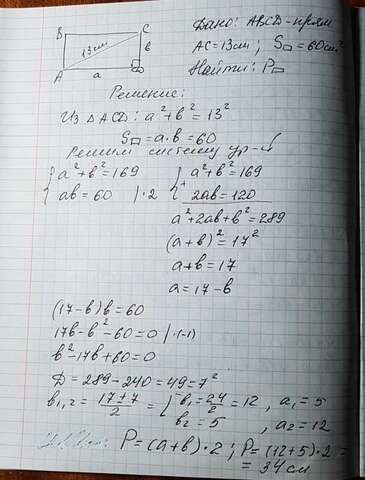 B C Дано: ABCD - прям
13см в AC = 13см ; S▭ = 60см²
A a D Найти: P▭
Решение:
Из △ACD: a² + в² = 13²
S▭ = a·в = 60
Решим систему ур-й
{ a² + в² = 169 { a² + в² = 169
{ aв = 60 | ·2 + 2aв = 120
a² + 2aв + в² = 289
(a + в)² = 17²
a + в = 17
a = 17 - в
(17 - в)в = 60
17в - в² - 60 = 0 | ·(-1)
в² - 17в + 60 = 0
D = 289 - 240 = 49 = 7²
в₁,₂ = (17 ± 7)/2 = [ в₁ = 24/2 = 12 , a₁ = 5
в₂ = 5 , a₂ = 12
P = (a + в)·2 ; P = (12 + 5)·2 =
= 34см